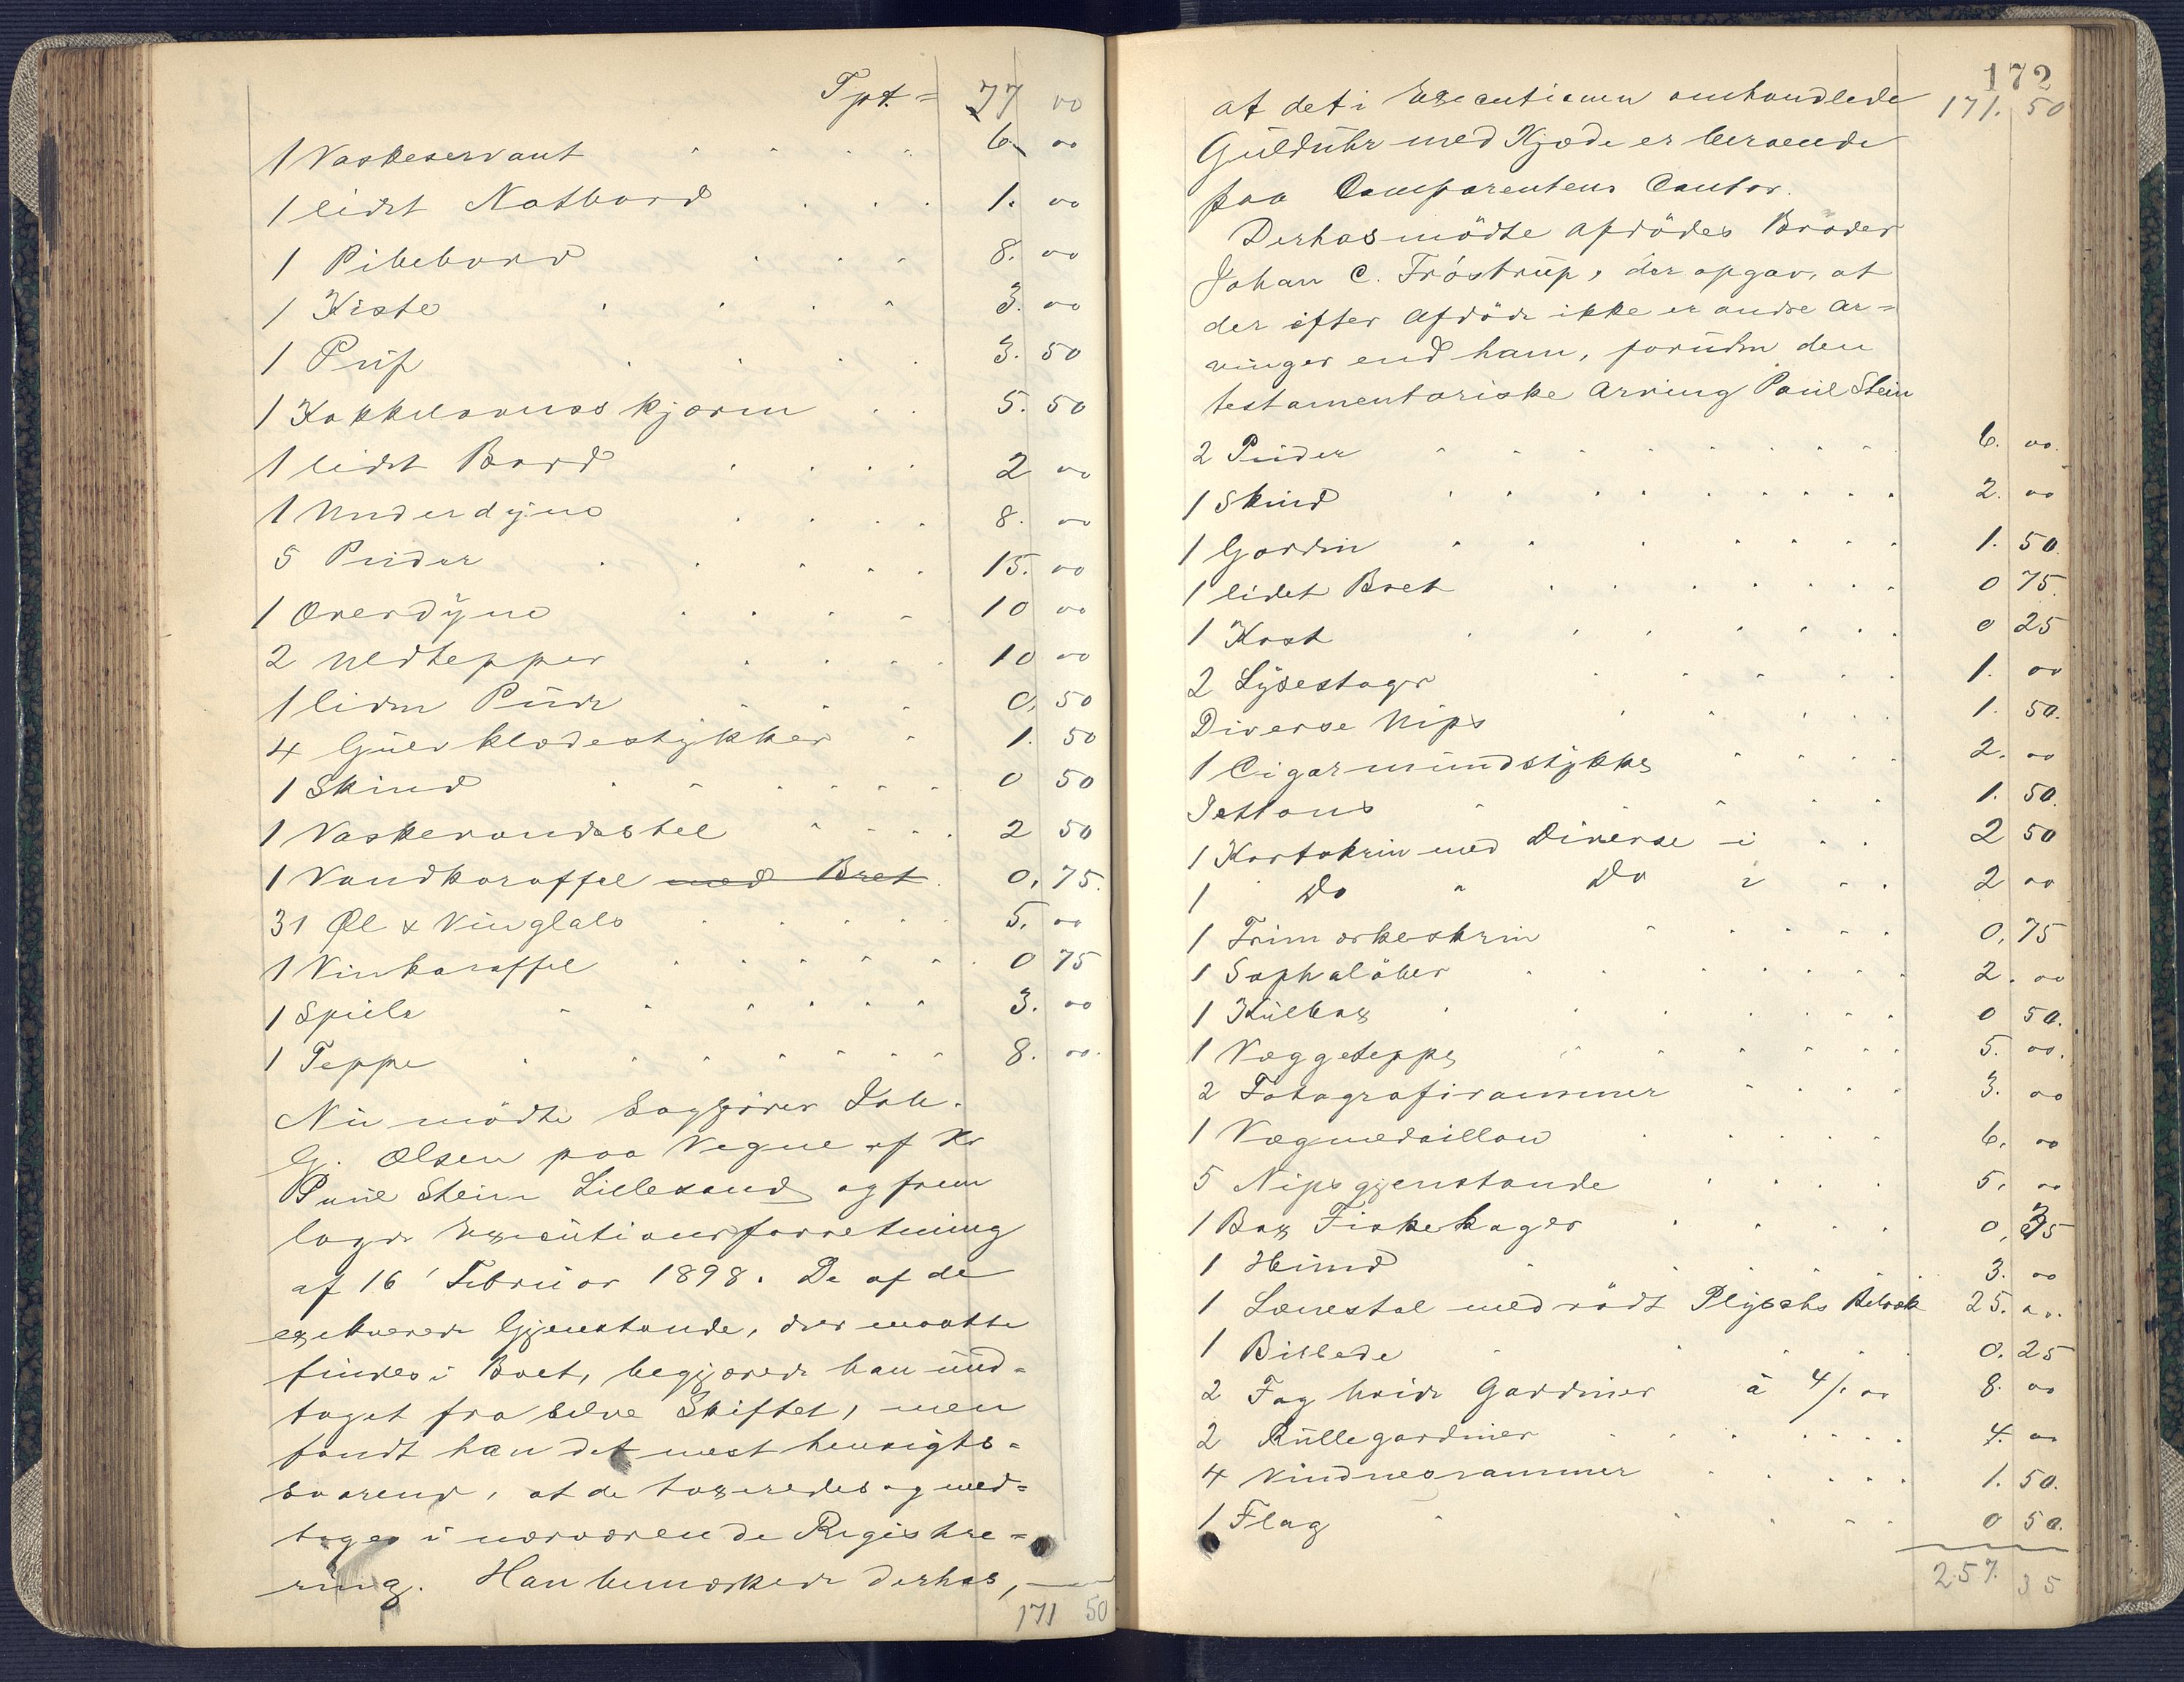 Tpt. = 77 00
1 Vaskeservant 6. 00
1 lidet Natbord 1. 00
1 Pibebord 8. 00
1 Kiste 3. 00
1 Puf 3. 50
1 Kakkelovnsskjærm 5. 50
1 lidet Bord 2 00
1 Underdyne 8. 00
5 Puder 15. 00
1 Overdyne 10 00
2 Uldtepper 10 00
1 liden Pude 0, 50
4 Gulvklædestykker 1. 50
1 Skind 0 50
1 Vaskevandsstel 2 50
1 Vandkaraffel med Bret 0, 75.
31 Øl & Vinglals 5. 00
1 Vinkaraffel 0 75
1 Speile 3. 00
1 Teppe 8. 00.
Nu mödte Sagförer Joh.
G. Olsen paa Vegne af Hr
Paul Stein Lillesand og frem
lagde Executionsforretning
af 16' Februar 1898. De af de
exekverede Gjenstande, der maatte
findes i Boet, begjærede han und=
taget fra selve Skiftet, men
fandt han det mest hensigts=
svarend, at de taxeredes og med=
toges i nærværende Registre=
ring. Han bemærkede derhos,
171 50
172
at det i Executionen omhandlede 171. 50
Guldühr med Kjæde er beroende
paa Comparentens Contor.
Derhos mödte Afdödes Broder
Johan C. Fröstrup, der opgav, at
der efter Afdöde ikke er andre Ar=
vinger end ham, foruden den
testamentariske Arving Paul Stein
2 Puder 6. 00.
1 Skind 2. 00
1 Gardin 1. 50.
1 lidet Bret 0 75.
1 Kost 0 25
2 Lysestager 1. 00
Diverse Nips 1. 50.
1 Cigarmundstykke 2. 00
Jettons 1. 50.
1 Kortskrin med Diverse i 2 50
1 Do " Do i 2 00
1 Frimærkeskrin 0, 75
1 Sophalöber 2. 00
1 Kulbox 0 50.
1 Væggeteppe 5. 00.
2 Fotografirammer 3. 00
1 Vægmedaillon 6. 00
5 Nipsgjenstande 5. 00
1 Box Fiskekager 0, 35
1 Hund 3. 00
1 Lænestol med rödt Plyschs Betræk 25. 00.
1 Billede 0. 25
2 Fag hvide Gardiner à 4/. 00 8. 00
2 Rullegardiner 4. 00
4 Vinduesrammer 1. 50.
1 Flag 0 50.
257. 35